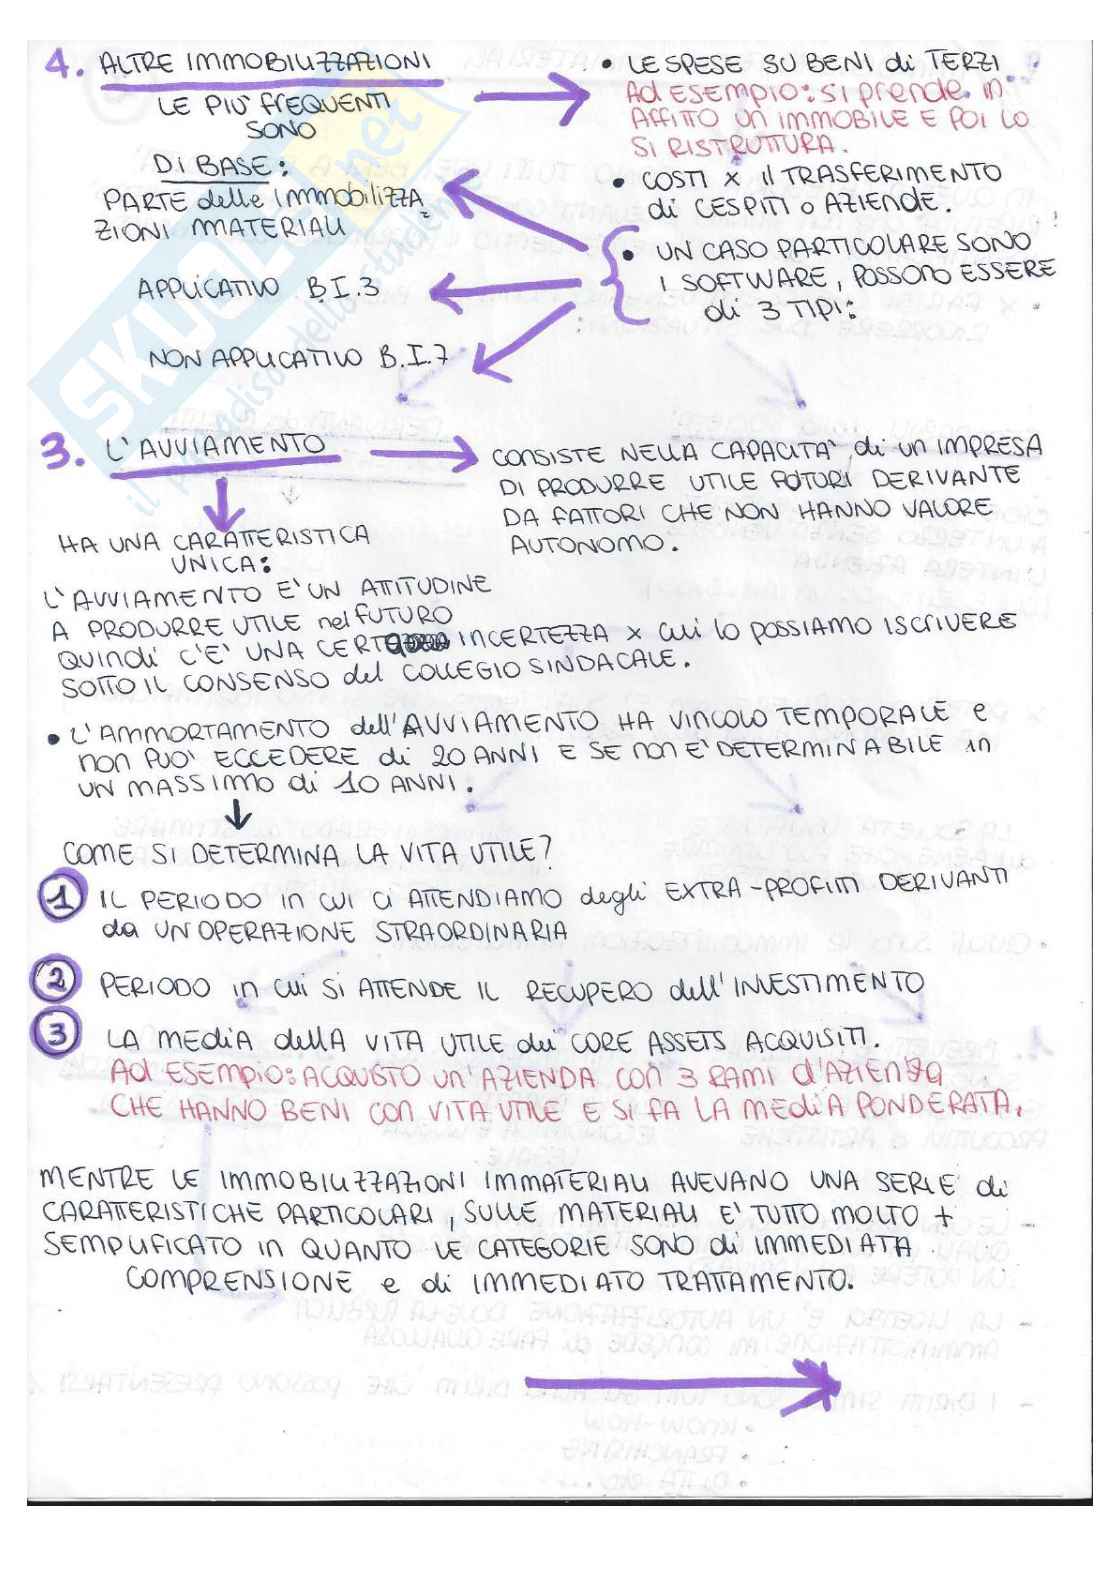 4. ALTRE IMMOBILIZZAZIONI
LE PIU' FREQUENTI
SONO
• LE SPESE SU BENI di TERZI
Ad ESEMPIO: SI prende in
AFFITTO UN IMMOBILE E POI LO
SI RISTRUTTURA.
• COSTI x il TRASFERIMENTO
di CESPITI o AZIENDE.
• UN CASO PARTICOLARE SONO
I SOFTWARE, POSSONO ESSERE
di 3 TIPI:
DI BASE:
PARTE delle immobilizza
ZIONI MATERIALI
APPLICATIVO B.I.3
NON APPLICATIVO B.I.7
SKUOLA.net
il paradiso dello studente
3. L'AVVIAMENTO
CONSISTE NELLA CAPACITA' di un IMPRESA
DI PRODURRE UTILE FUTURI DERIVANTE
DA FATTORI CHE NON HANNO VALORE
AUTONOMO.
HA UNA CARATTERISTICA
UNICA:
L'AVVIAMENTO E' UN ATTITUDINE
A PRODURRE UTILE nel FUTURO
QUINDI C'E' UNA CERTA INCERTEZZA x cui lo possiamo ISCRIVERE
SOTTO IL CONSENSO del COLLEGIO SINDACALE.
• L'AMMORTAMENTO dell'AVVIAMENTO HA VINCOLO TEMPORALE e
non PUO' ECCEDERE di 20 ANNI E SE non E' DETERMINABILE in
UN MASSIMO di 10 ANNI.
COME SI DETERMINA LA VITA UTILE?
1 IL PERIODO in cui ci ATTENDIAMO degli EXTRA-PROFITTI DERIVANTI
da UN'OPERAZIONE STRAORDINARIA
2 PERIODO in cui si ATTENDE IL RECUPERO dell'INVESTIMENTO
3 LA MEDIA della VITA UTILE dei CORE ASSETS ACQUISITI.
Ad ESEMPIO: ACQUISTO un'AZIENDA con 3 RAMI d'AZIENDA
CHE HANNO BENI con VITA UTILE E SI FA LA MEDIA PONDERATA.
MENTRE LE IMMOBILIZZAZIONI IMMATERIALI AVEVANO UNA SERIE di
CARATTERISTICHE PARTICOLARI, SULLE MATERIALI E' TUTTO MOLTO +
SEMPLIFICATO in QUANTO LE CATEGORIE SONO di IMMEDIATA
COMPRENSIONE e di IMMEDIATO TRATTAMENTO.